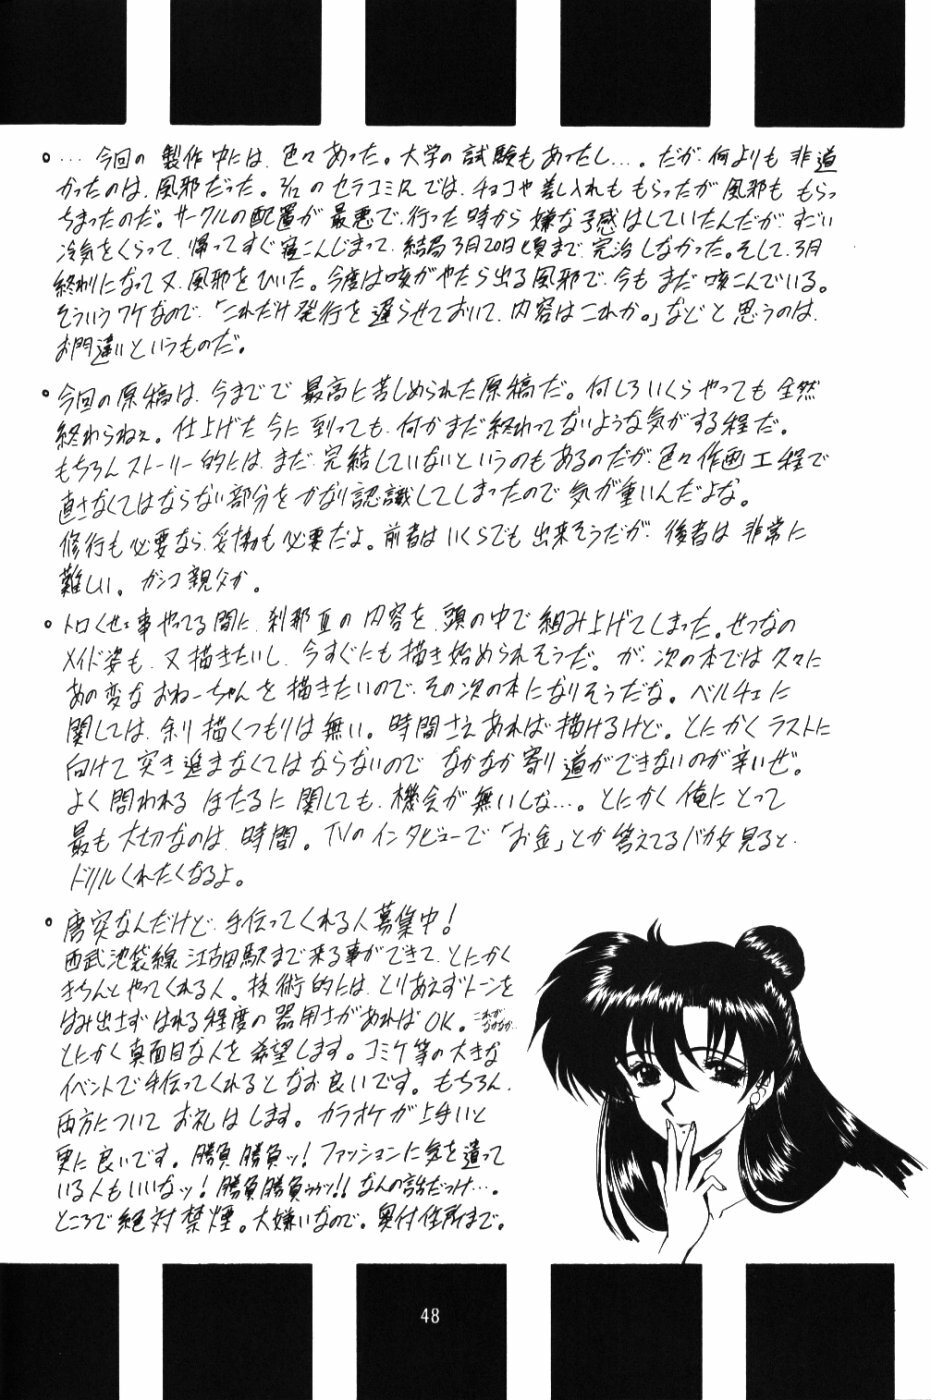 。… 今回の製作中には、色々あった。大学の試験もあったし…。だが、何よりも非道
かったのは、風邪だった。3/12のセラコミ Rでは、チョコや差し入れももらったが風邪ももらっ
ちまったのだ。サークルの配置が最悪で、行った時から嫌な予感はしていたんだが、すごい
冷気をくらって、帰ってすぐ寝こんじまって、結局3月20日頃まで、完治しなかった。そして、3月
終わりになって又、風邪をひいた。今度は咳がやたら出る風邪で、今もまだ咳こんでいる。
そういうワケなので、「これだけ発行を遅らせておいて、内容はこれか。」などと思うのは、
お門違いというものだ。
。今回の原稿は、今までで最高に苦しめられた原稿だ。何しろいくらやっても全然
終わらねぇ。仕上げた今に到っても、何かまだ終わってないような気がする程だ。
もちろんストーリー的には、まだ完結していないというのもあるのだが、色々作画工程で
直さなくてはならない部分をかなり認識してしまったので気が重いんだよな。
修行も必要なら、妥協も必要だよ。前者はいくらでも出来そうだが、後者は非常に
難しい。ガンコ親父か。
。トロくせェ事やってる間に、刹那Ⅲの内容を、頭の中で組み上げてしまった。せつなの
メイド姿も、又描きたいし、今すぐにも描き始められそうだ。が、次の本では久々に
あの変なおねーちゃんを描きたいので、その次の本になりそうだな。ベルチェに
関しては、余り描くつもりは無い。時間さえあれば描けるけど。とにかくラストに
向けて突き進まなくてはならないので なかなか寄り道ができないのが辛いぜ。
よく問われるほたるに関しても、機会が無いしな…。とにかく俺にとって
最も大切なのは、時間。TVのインタビューで「お金」とか答えてるバカ女見ると、
ドリルくれたくなるよ。
。唐突なんだけど、手伝ってくれる人募集中!
西武池袋線江古田駅まで来る事ができて、とにかく
きちんとやってくれる人。技術的には、とりあえずトーンを
はみ出さずはれる程度の器用さがあればOK。これがなかなか…
とにかく真面目な人を希望します。コミケ等の大きな
イベントで手伝ってくれるとなお良いです。もちろん、
両方についてお礼はします。カラオケが上手いと
更に良いです。勝負勝負ッ!ファッションに気を遣って
いる人もいいなッ!勝負勝負ゥゥッ!!なんの話だっけ…。
ところで絶対禁煙。大嫌いなので。奥付住所まで。
48